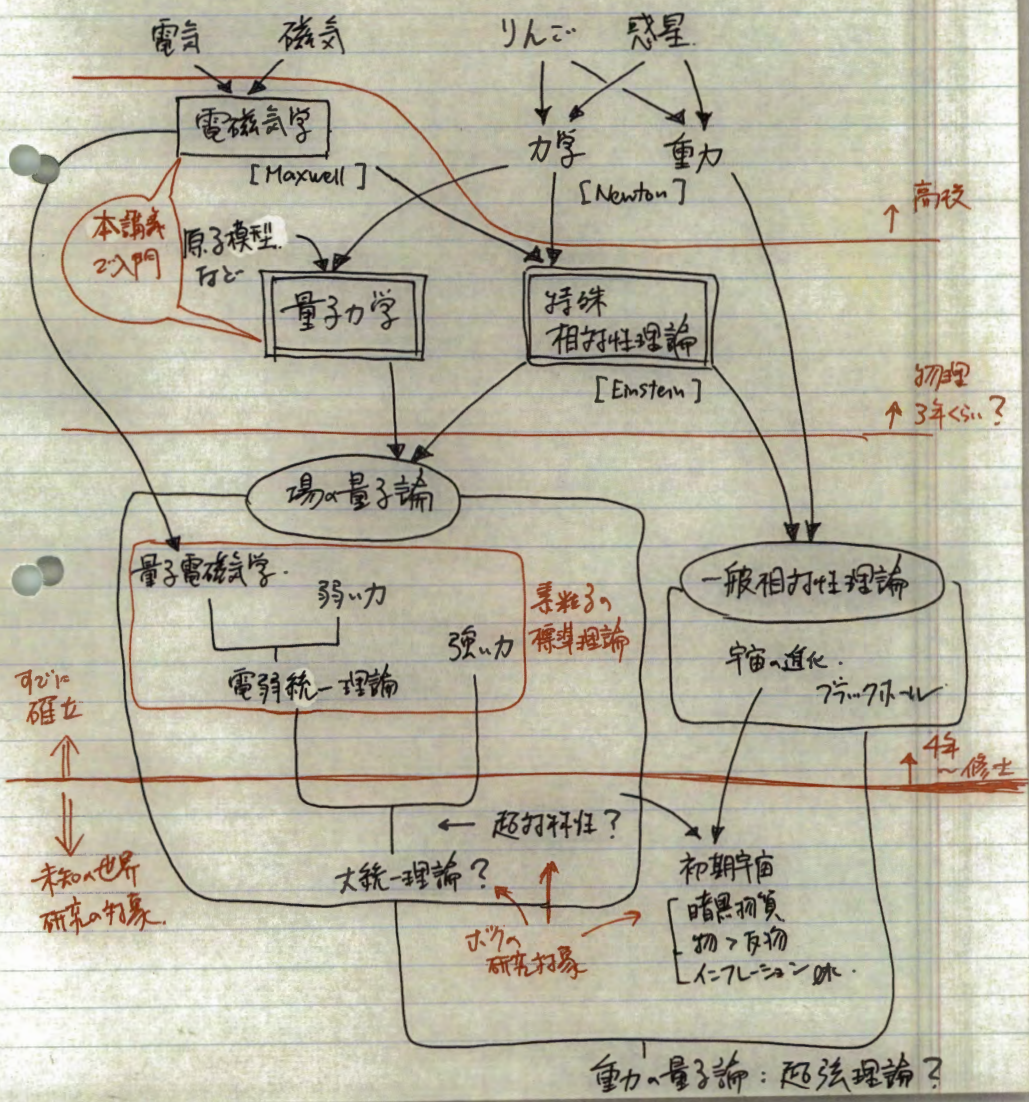 電気 磁気 りんご 惑星
電磁気学
[Maxwell]
力学 重力
[Newton]
↑ 高校
本講義
で入門
原子模型
など
量子力学
特殊
相対性理論
[Einstein]
物理
↑ 3年くらい?
場の量子論
量子電磁気学
弱い力
強い力
電弱統一理論
素粒子の
標準理論
一般相対性理論
宇宙の進化
ブラックホール
すでに
確立
↑ 4年
〜修士
未知の世界
研究の対象
← 超対称性?
大統一理論?
ボクの
研究対象
初期宇宙
暗黒物質
物>反物
インフレーション etc.
重力の量子論:超弦理論?